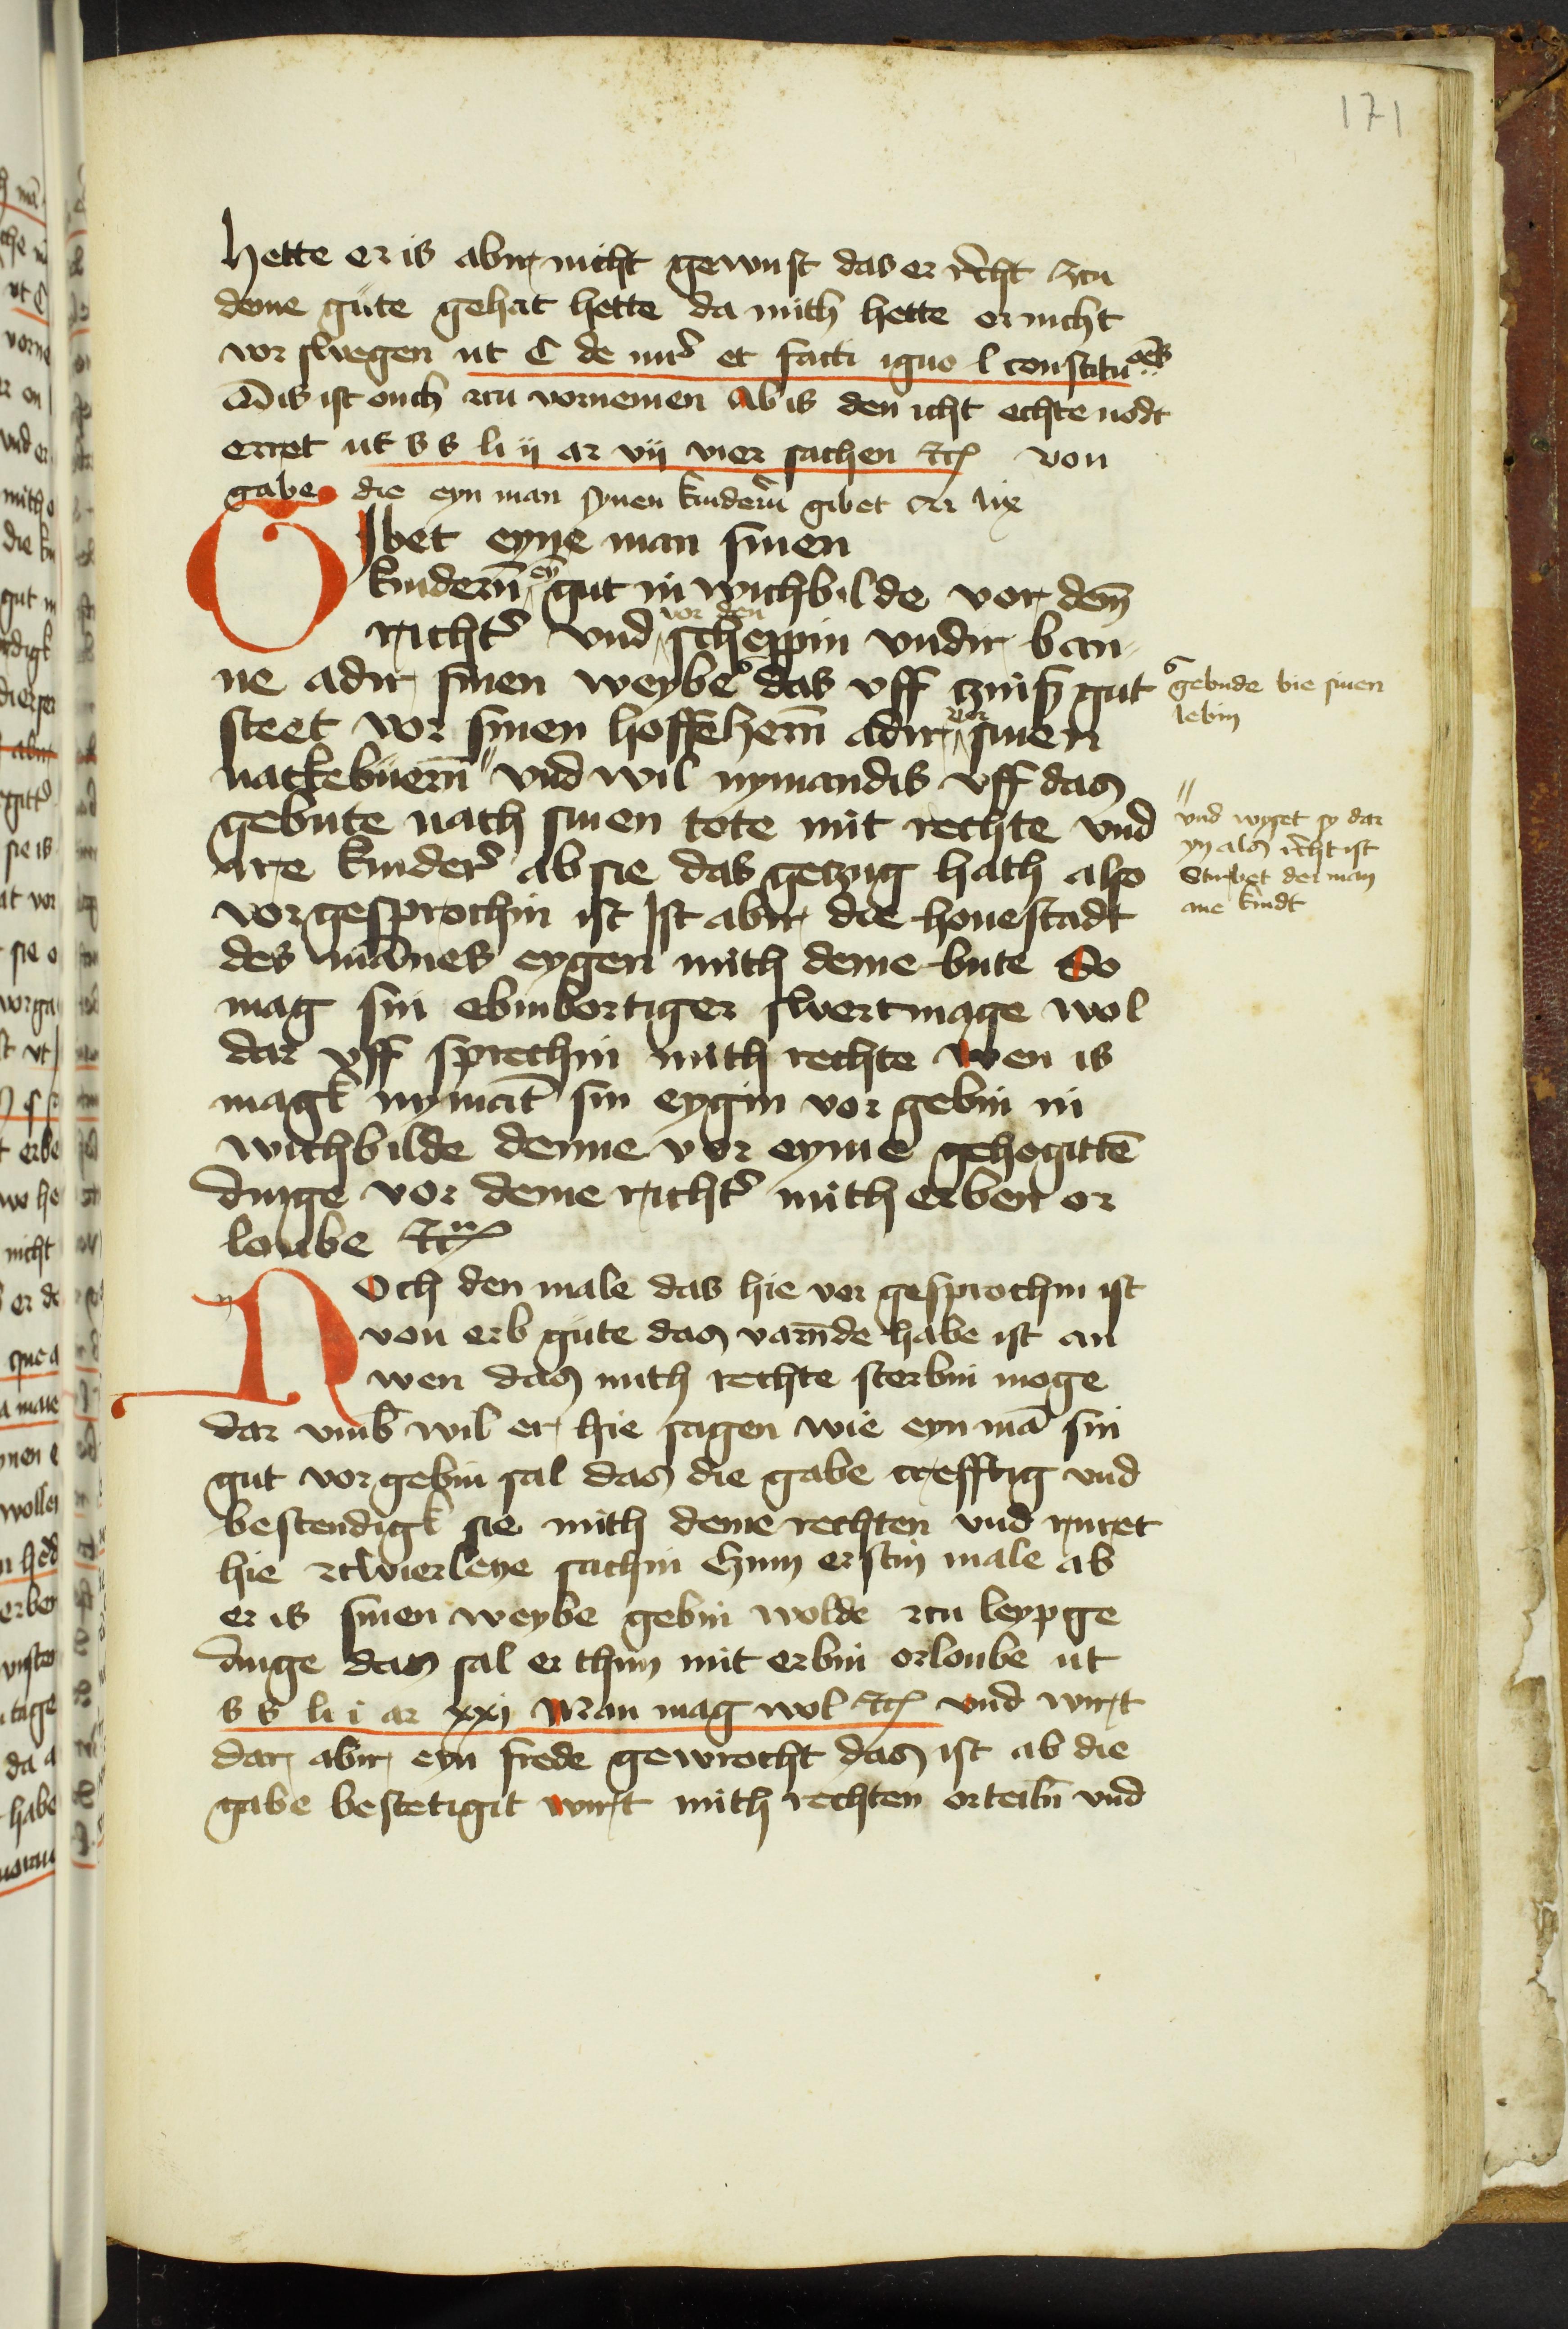 171
hette er is abir nicht gewust das er rēcht zcu
deme gute gehat hette da mith hette er nicht
vor swegen ut C de iurꝭ et facti igno l constitu oēs
Dis ist ouch zcu vornemen Ab is den icht echte nodt
erret ut s s li ij ar vij vier sachen etc̄ von
gabe die eyn man synen kinderñ gibet ca lix
Gibet eyne man sinen
kinderñ eyn gut in wichbilde vor dem̄
richtꝭ vnd vor den scheppin vndir ban
ne adir sinen weybe das vff tzinß gut
gebude bie sinen
lebin
steet vor sinen hoffeherñ adir vor sinen
nackebuerñ vnd wil nymandis vff das
gebute nach sinen tote mit rechte vnd
vnd wyset sy dar
yn als rēcht ist
Stirbet der man
ane kindt
are kinderꝭ ab sie das getzug hath also
vorgesprochin ist Ist abir die houestadt
des mānes eygen mith deme bute So
mag sin ebinbortiger swertmage wol
dar vff sprechin mith rechte wen is
magk nymāt sin eygin vor gebin in
wichbilde denne vor eyme gehegittē
dinge vor deme richtꝭ mith erben or
loube etc̄
Noch den male das hie vor gesprochin ist
von erb gute das varn̄de habe ist an
wen das mith rechte sterbin moge
dar vmb wil er hie sagen wie eyn mā sin
gut vorgebin sal das die gabe crefftig vnd
bestendigk sie mith deme rechten vnd ruret
hie zcwierleye sachin Czum erstin male ab
er is sinen weybe gebin wolde zcu leypge
dinge das sal er thun mit erbin orloube ut
s s li i ar xxi Man mag wol etc̄ vnd wirt
dar abir eyn frede gewrocht das ist ab die
gabe bestetigit wirt mith rechten orteiln̄ vnd